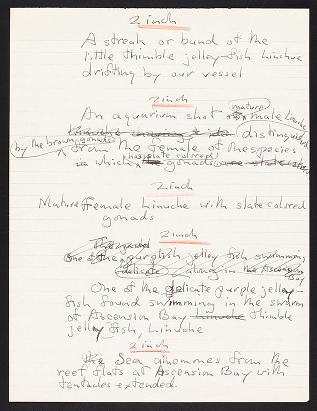 2 inch
A streak or band of the
little thimble jelley-fish Linuche
drifting by our vessel
2 inch
An aquarium shot of mature male Linuche
distinguished
by the brown gonads from the female of the species
in which has slate colored gonads were slate
2 inch
Mature Female Linuche with slate colored
gonads
2 inch
One of the purplish jelly fish swimming
(delicate) along in the Ascension
Bay
One of the delicate purple jelley-
fish found swimming in the swarm
of Ascension Bay Linuche thimble
jelley fish, Linuche
2 inch
the Sea anemmes from the
reef flats at Ascension Bay with
tentacles extended.